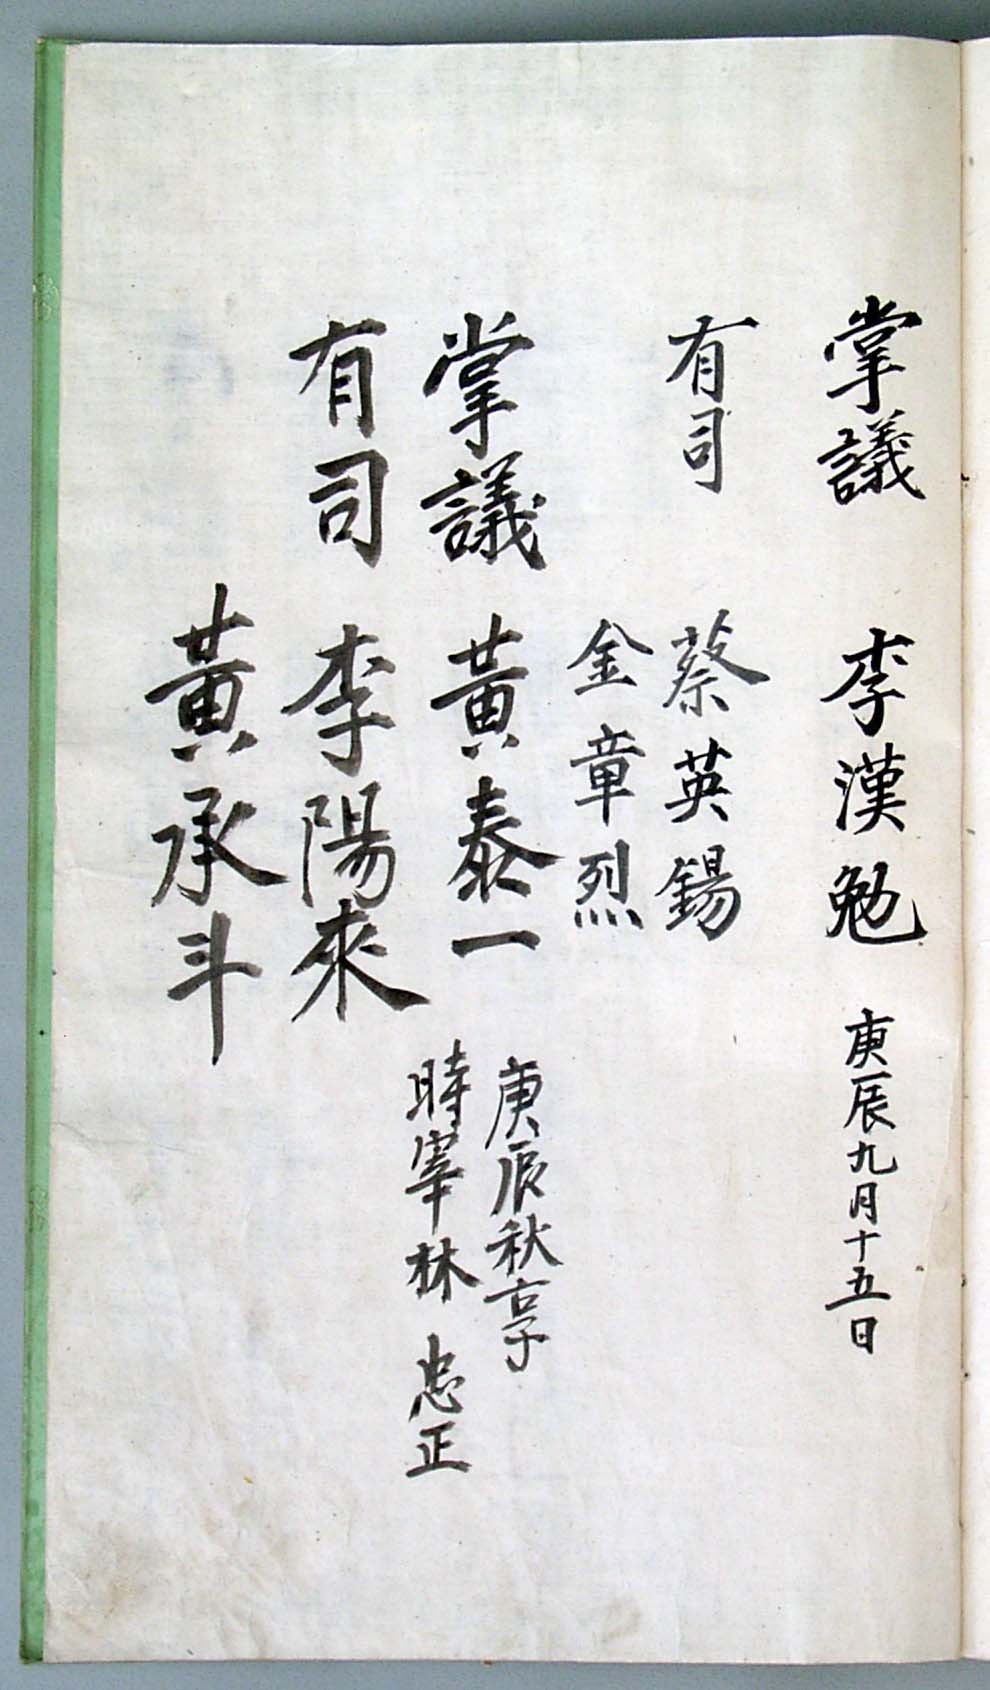 掌議 李漢勉 庚辰九月十五日
有司 蔡英錫
金章烈
掌議 黃泰一 庚辰秋享
時宰林 忠正
有司 李陽來
黃承斗